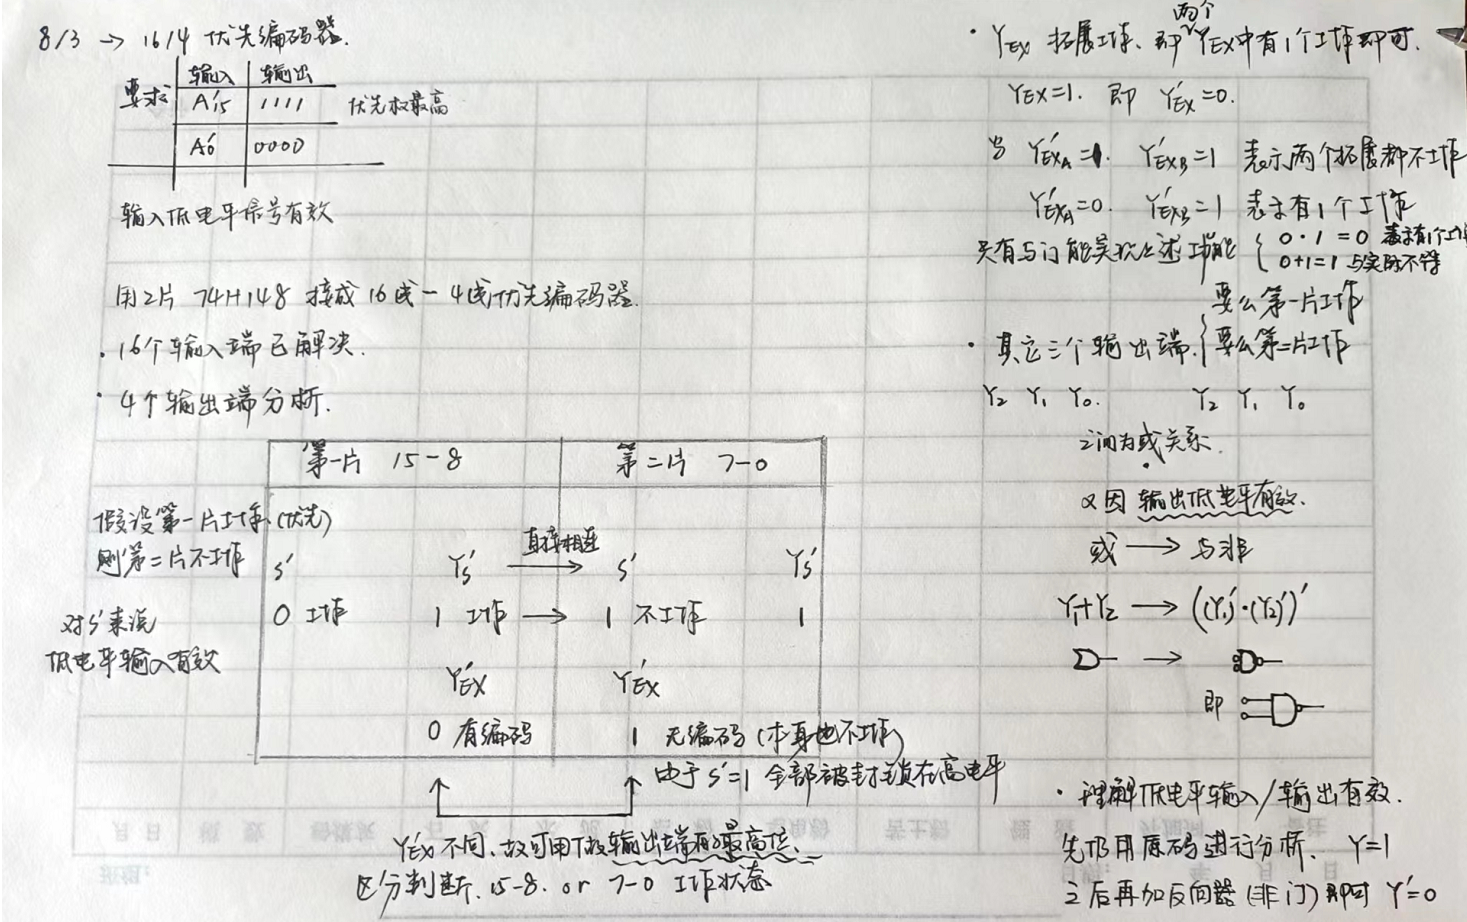 8/3 → 16/4 优先编码器.
输入 输出
要求 A'15 1111 优先权最高
A'0 0000
输入低电平信号有效
用2片 74H148 接成 16线-4线优先编码器.
· 16个输入端已解决.
· 4个输出端分析.
第一片 15-8 第二片 7-0
假设第一片工作(优先)
则第二片不工作
S' Y's 直接相连 → S' Y's
对S'来说
低电平输入有效
0 工作 1 工作 → 1 不工作 1
Y'EX Y'EX
0 有编码 1 无编码(本身也不工作)
由于S'=1 全部被封锁在高电平
Y'EX不同,故可用做输出端的最高位.
区分判断.15-8. or 7-0 工作状态
· YEX 拓展工作、即两个YEX中有1个工作即可.
YEX=1. 即 Y'EX=0.
当 Y'EXA=1. Y'EXB=1 表示两个拓展都不工作
Y'EXA=0. Y'EXB=1 表示有1个工作
只有与门能实现上述功能 { 0·1=0 表示有1个工作
0+1=1 与实际不符
· 其它三个输出端. { 要么第一片工作
要么第二片工作
Y2 Y1 Y0. Y2 Y1 Y0
之间为或关系.
又因 输出低电平有效.
或 → 与非
Y1+Y2 → ((Y1)'·(Y2)')'
→
即
· 理解低电平输入/输出有效.
先仍用原码进行分析. Y=1
之后再加反向器(非门)即可 Y'=0